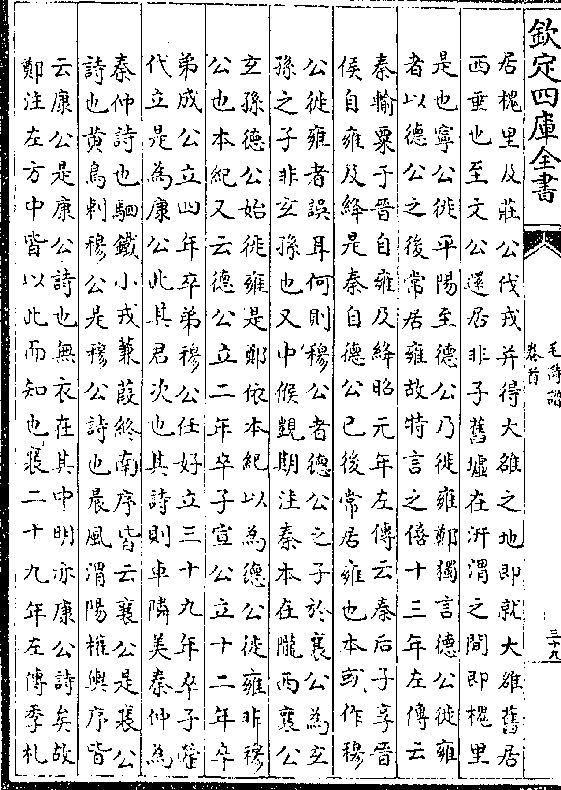 欽定四庫全書
毛詩譜
卷首
三十九
居槐里及莊公伐戎并得大雒之地即就大雒舊居
西垂也至文公還居非子舊墟在汧渭之間即槐里
是也寧公徙平陽至德公乃徙雍鄭獨言德公徙雍
者以德公之後常居雍故特言之僖十三年左傳云
秦輸粟于晉自雍及絳昭元年左傳云秦后子享晉
侯自雍及絳是秦自德公已後常居雍也本或作穆
公徙雍者誤耳何則穆公者德公之子於襄公為玄
孫之子非玄孫也又中候覬期注秦本在隴西襄公
玄孫德公始徙雍是鄭依本紀以為德公徙雍非穆
公也本紀又云德公立二年卒子宣公立十二年卒
弟成公立四年卒弟穆公任好立三十九年卒子罃
代立是為康公此其君次也其詩則車隣美秦仲為
秦仲詩也駟鐵小戎蒹葭終南序皆云襄公是襄公
詩也黃鳥刺穆公是穆公詩也晨風渭陽權輿序皆
云康公是康公詩也無衣在其中明亦康公詩矣故
鄭注左方中皆以此而知也襄二十九年左傳季札